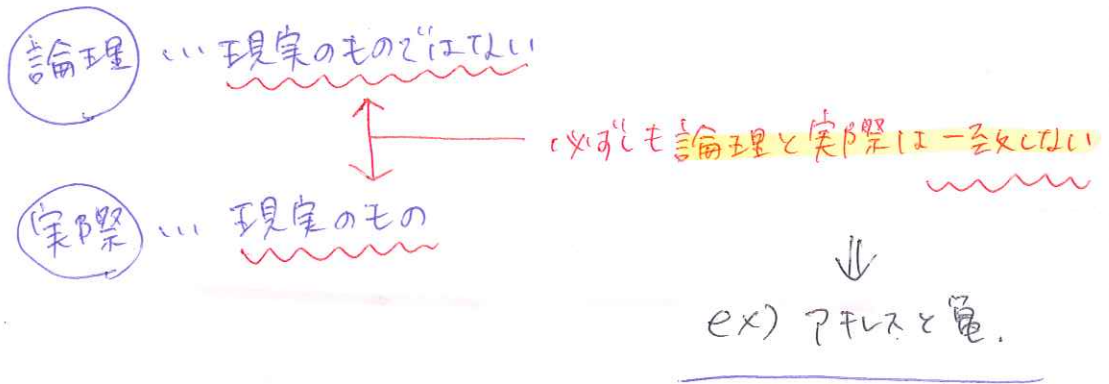 論理 … 現実のものではない
必ずしも論理と実際は一致しない
実際 … 現実のもの
ex) アキレスと亀.